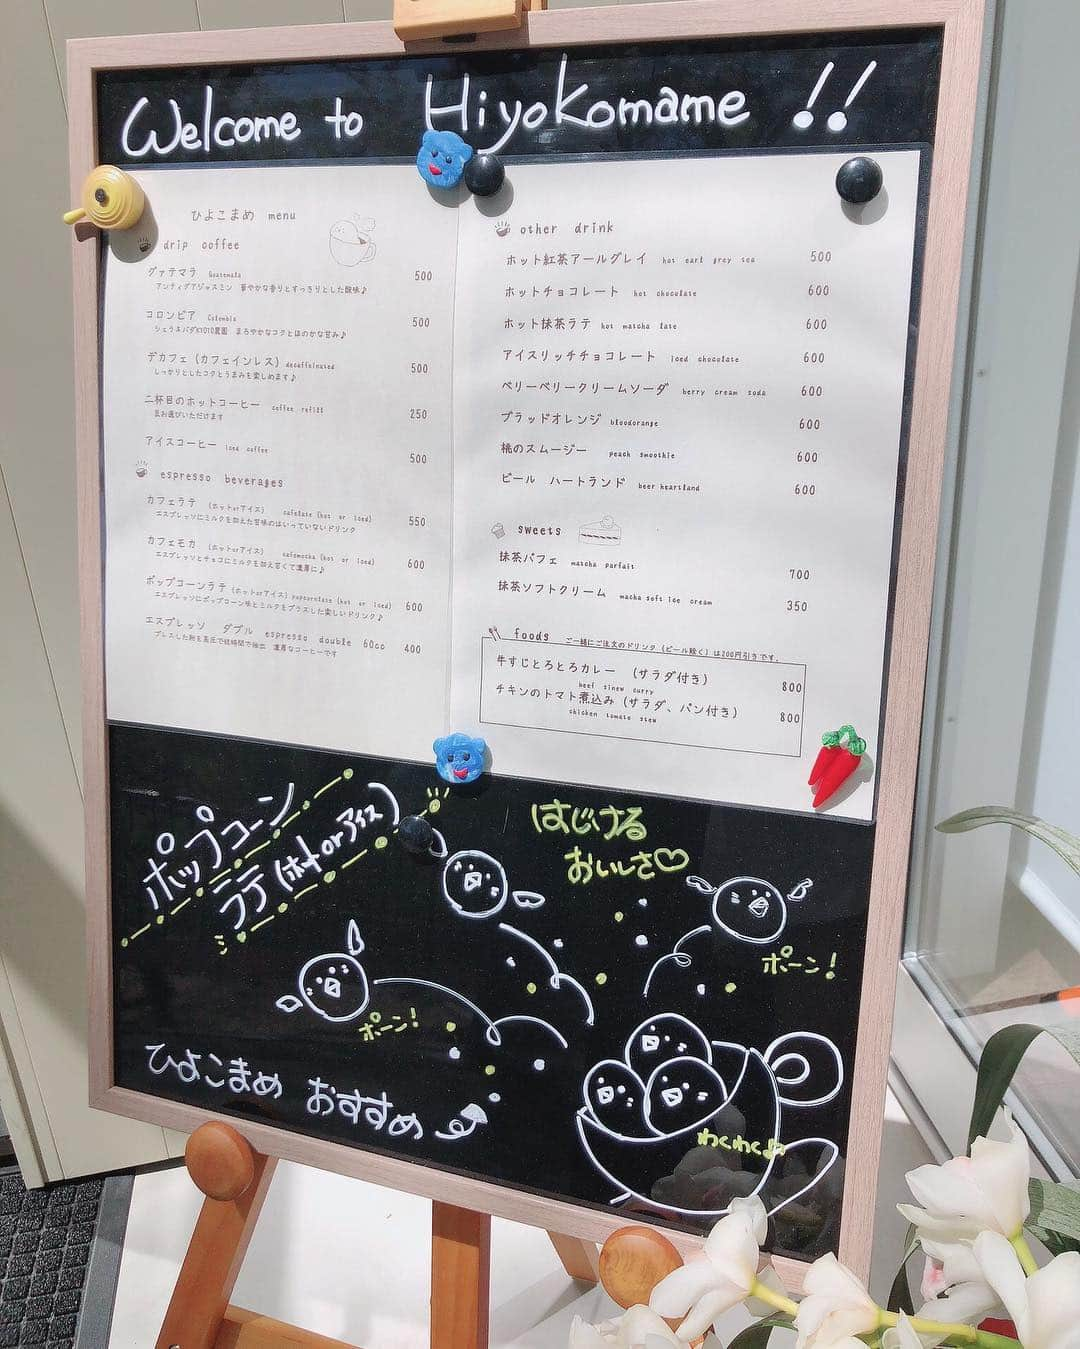 Welcome to Hiyokomame !!
ひよこまめ menu
drip coffee
グァテマラ Guatemala 500
アンティグアジャスミン 華やかな香りとすっきりとした酸味♪
コロンビア Colombia 500
シェラネバダKYOTO農園 まろやかなコクとほのかな甘み♪
デカフェ(カフェインレス) decaffeinated 500
しっかりとしたコクとうまみを楽しめます♪
二杯目のホットコーヒー coffee refill 250
豆お選びいただけます
アイスコーヒー iced coffee 500
espresso beverages
カフェラテ (ホットorアイス) cafelate (hot or iced) 550
エスプレッソにミルクを加えた甘味のはいっていないドリンク
カフェモカ (ホットorアイス) cafemocha (hot or iced) 600
エスプレッソとチョコにミルクを加え甘くて濃厚に♪
ポップコーンラテ (ホットorアイス) popcornlate (hot or iced) 600
エスプレッソにポップコーン味とミルクをプラスした楽しいドリンク♪
エスプレッソ ダブル espresso double 60cc 400
プレスした粉を高圧で短時間で抽出 濃厚なコーヒーです
other drink
ホット紅茶アールグレイ hot earl grey tea 500
ホットチョコレート hot chocolate 600
ホット抹茶ラテ hot matcha late 600
アイスリッチチョコレート iced chocolate 600
ベリーベリークリームソーダ berry cream soda 600
ブラッドオレンジ bloodorange 600
桃のスムージー peach smoothie 600
ビール ハートランド beer heartland 600
sweets
抹茶パフェ matcha parfait 700
抹茶ソフトクリーム macha soft ice cream 350
foods ご一緒にご注文のドリンク(ビール除く)は200円引きです。
牛すじとろとろカレー (サラダ付き) 800
beef sinew curry
チキンのトマト煮込み(サラダ、パン付き) 800
chicken tomato stew
ポップコーン
ラテ(ホットorアイス)
はじける
おいしさ♡
ポーン!
ポーン!
ひよこまめ おすすめ
わくわく♪